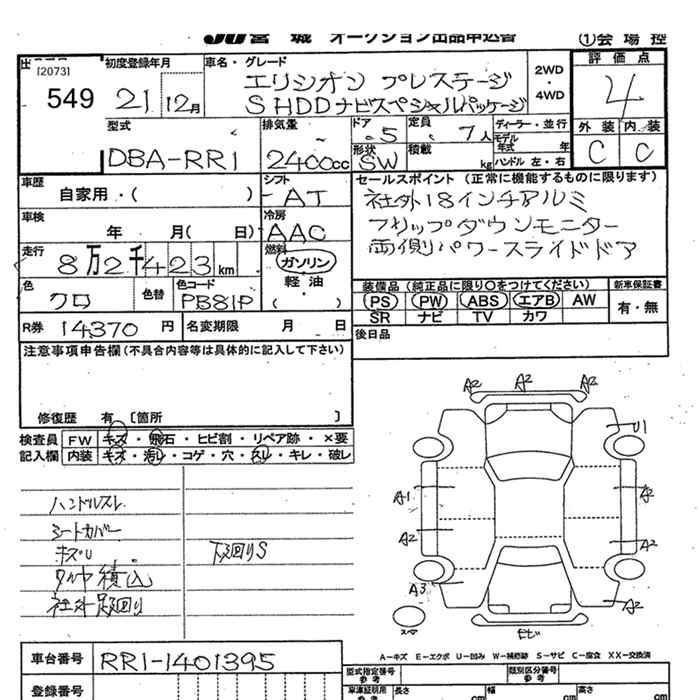 JU 宮城 オークション出品申込書 ①会場控
出
[2073]
549
初度登録年月
21 12月
車名・グレード
エリシオン プレステージ
S HDDナビスペシャルパッケージ
2WD
・
4WD
評価点
4
外装 内装
C C
型式
DBA-RR1
排気量
2400cc
ドア
5
定員
7人
ディーラー・並行
モデル
年式 年
形状
SW
積載
kg
ハンドル 左・右
車歴
自家用・( )
シフト
AT
セールスポイント (正常に機能するものに限ります)
社外18インチアルミ
フリップダウンモニター
両側パワースライドドア
車検
年 月( 日)
冷房
AAC
走行
8万2千423km
燃料
ガソリン
軽油
・
( )
色
クロ
色替
色コード
PB81P
装備品 (純正品に限り○をつけてください)
新車保証書
PS PW ABS エアB AW
SR ナビ TV カワ
有・無
R券 14370円
名変期限 月 日
後日品
注意事項申告欄(不具合内容等は具体的に記入して下さい)
修復歴 有 〔箇所 〕
検査員 FW キズ・飛石・ヒビ割・リペア跡・×要
記入欄 内装 キズ・汚レ・コゲ・穴・スレ・キレ・破レ
ハンドルスレ
シートカバー
キズU
下廻りS
タイヤ積込
社外足廻り
A2 A2 A2
U1
A1
A2
A2
A2
A3
A2
スペア
A-キズ E-エクボ U-凹み W-補修跡 S-サビ C-腐食 XX-交換済
車台番号 RR1-1401395
登録番号
型式指定番号
参考
類別区分番号
参考
車庫証明用
参考
長さ cm
幅 cm
高さ cm